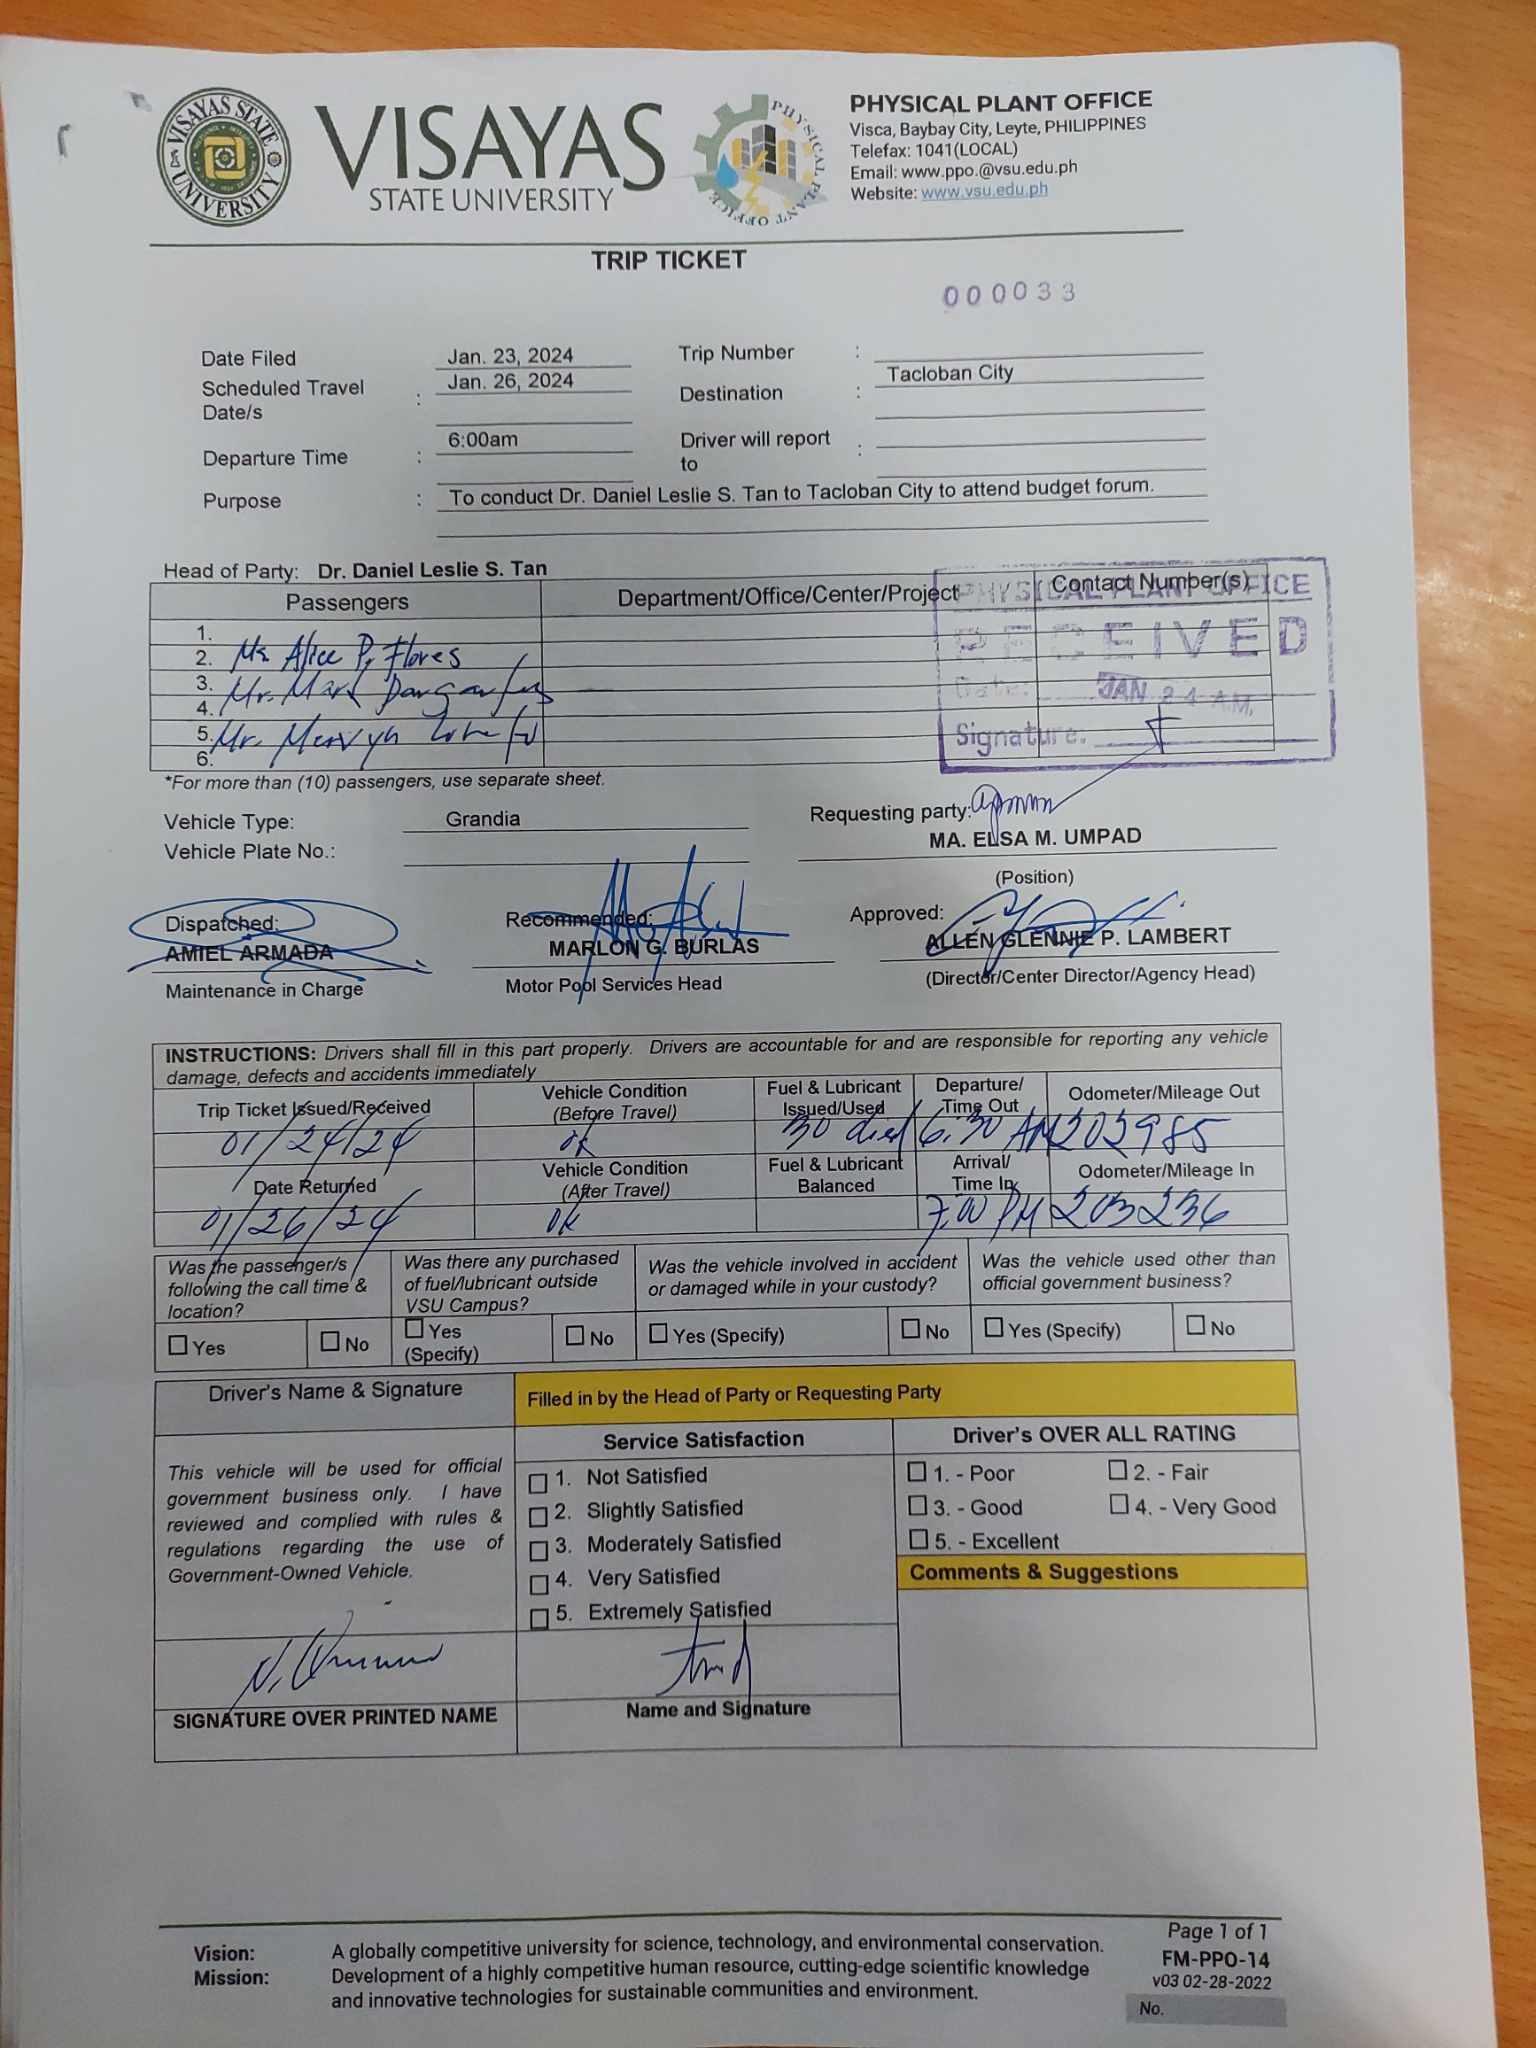 VISAYAS STATE UNIVERSITY
VISAYAS
STATE UNIVERSITY
PHYSICAL PLANT OFFICE
PHYSICAL PLANT OFFICE
Visca, Baybay City, Leyte, PHILIPPINES
Telefax: 1041(LOCAL)
Email: www.ppo.@vsu.edu.ph
Website: www.vsu.edu.ph
TRIP TICKET
000033
Date Filed Jan. 23, 2024 Trip Number :
Scheduled Travel Date/s : Jan. 26, 2024 Destination : Tacloban City
Departure Time : 6:00am Driver will report to :
Purpose : To conduct Dr. Daniel Leslie S. Tan to Tacloban City to attend budget forum.
Head of Party: Dr. Daniel Leslie S. Tan
Passengers Department/Office/Center/Project Contact Number(s)
1.
2. Ms Alice P. Flores
3. Mr. Mark
4.
5. Mr. Mervyn
6.
PHYSICAL PLANT OFFICE
RECEIVED
Date: JAN 24 A.M.
Signature:
*For more than (10) passengers, use separate sheet.
Vehicle Type: Grandia
Vehicle Plate No.:
Requesting party:
MA. ELSA M. UMPAD
(Position)
Dispatched: Recommended: Approved:
AMIEL ARMADA MARLON G. BURLAS ALLEN GLENNIE P. LAMBERT
Maintenance in Charge Motor Pool Services Head (Director/Center Director/Agency Head)
INSTRUCTIONS: Drivers shall fill in this part properly. Drivers are accountable for and are responsible for reporting any vehicle
damage, defects and accidents immediately
Trip Ticket Issued/Received Vehicle Condition (Before Travel) Fuel & Lubricant Issued/Used Departure/ Time Out Odometer/Mileage Out
01/24/24 OK 30 6:30 AM 202985
Date Returned Vehicle Condition (After Travel) Fuel & Lubricant Balanced Arrival/ Time In Odometer/Mileage In
01/26/24 OK 7:00 PM 203236
Was the passenger/s following the call time & location? Was there any purchased of fuel/lubricant outside VSU Campus? Was the vehicle involved in accident or damaged while in your custody? Was the vehicle used other than official government business?
Yes No Yes (Specify) No Yes (Specify) No Yes (Specify) No
Driver's Name & Signature
Filled in by the Head of Party or Requesting Party
This vehicle will be used for official
government business only. I have
reviewed and complied with rules &
regulations regarding the use of
Government-Owned Vehicle.
SIGNATURE OVER PRINTED NAME
Service Satisfaction
1. Not Satisfied
2. Slightly Satisfied
3. Moderately Satisfied
4. Very Satisfied
5. Extremely Satisfied
Name and Signature
Driver's OVER ALL RATING
1. - Poor 2. - Fair
3. - Good 4. - Very Good
5. - Excellent
Comments & Suggestions
Vision: A globally competitive university for science, technology, and environmental conservation.
Mission: Development of a highly competitive human resource, cutting-edge scientific knowledge
and innovative technologies for sustainable communities and environment.
Page 1 of 1
FM-PPO-14
v03 02-28-2022
No.